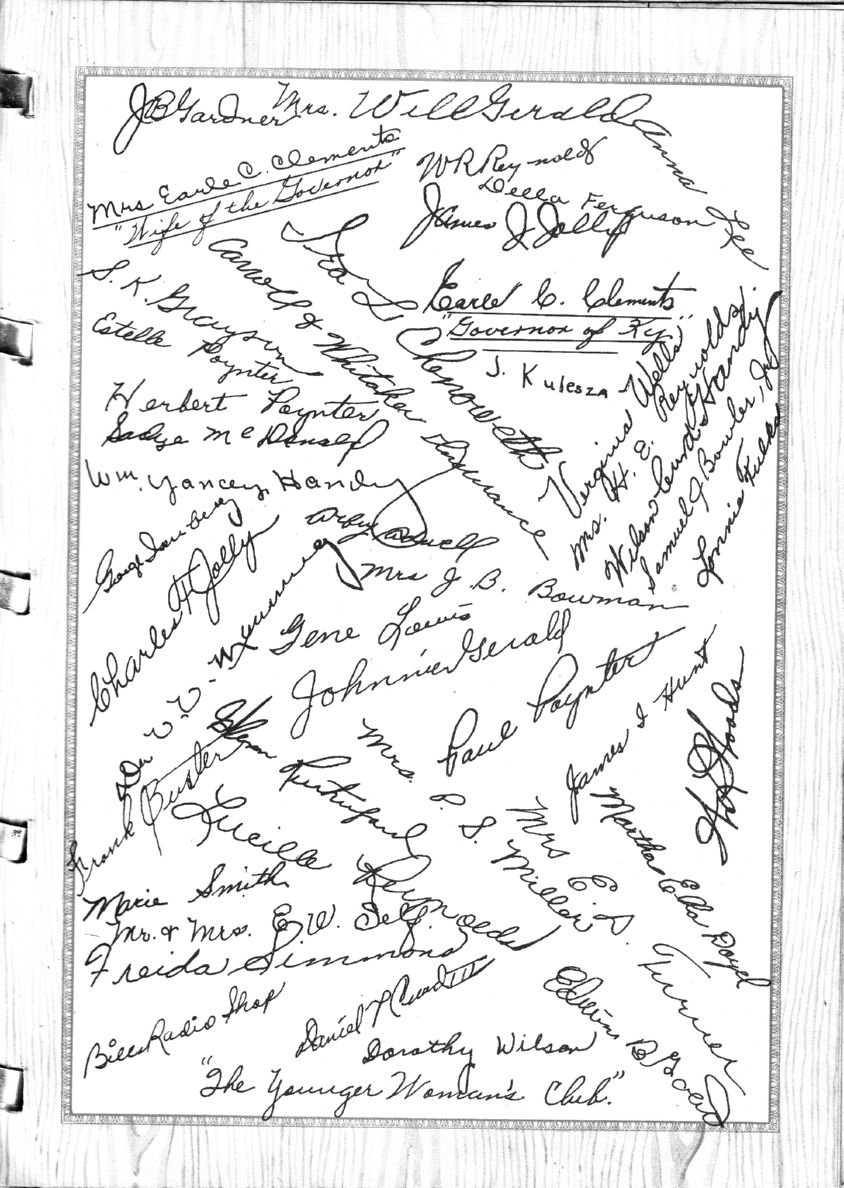 JB Gardner
Mrs. Will Gerald
Anna Lee
Mrs Earle C. Clements
"Wife of the Governor"
W R Reynolds
Della Ferguson
James J Jolly
Ira S Chenoweth
Carroll & Whitaker Insurance
S. K. Grayson
Estelle Poynter
Earle C. Clements
"Governor of Ky."
J. Kulesza
Herbert Poynter
McDonald
Wm. Yancey Handy
Virginia Wells
Mrs. H. E. Reynolds
Wilson Curd Handy
Samuel J Bowler, Jr
Lonnie
George
Charles H Jolly
Mrs J. B. Bowman
Gene Lewis
Johnnie Gerald
Dr V. V.
Paul Poynter
Mrs. P. S. Miller
James I Hunt
Woods
Frank Buster
Glenn Rutherford
Lucille Reynolds
Mrs E. D. Turner
Martha Ella Doyel
Marie Smith
Mr. & Mrs. E. W. Self.
Freida Simmons
Bills Radio Shop
Daniel Curd III
Edwin B
Dorothy Wilson
"The Younger Woman's Club."